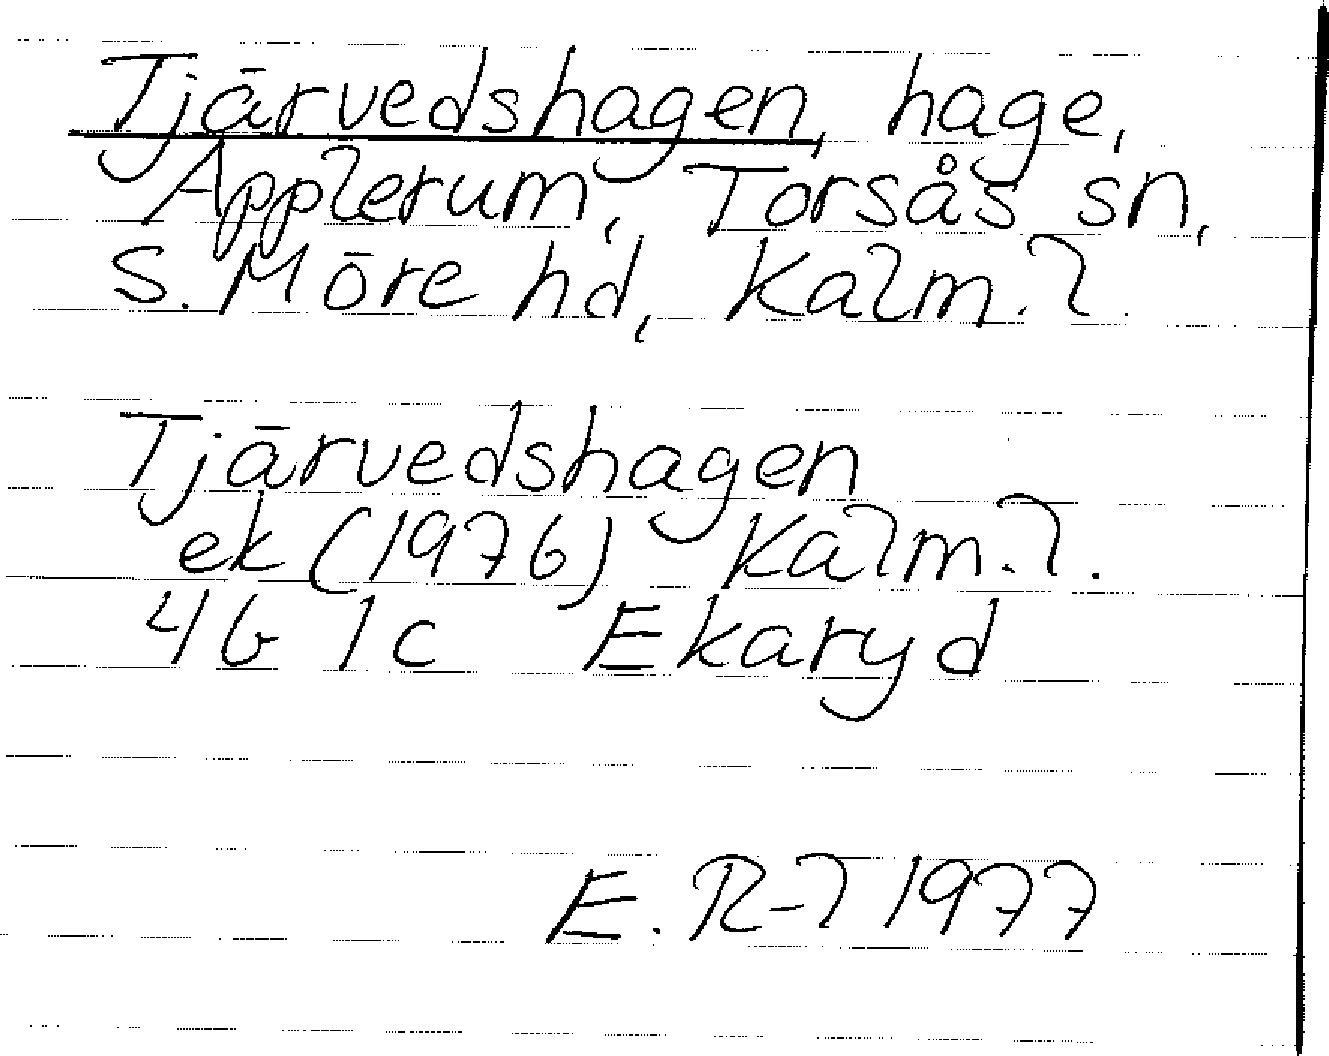 Tjärvedshagen, hage,
Applerum, Torsås sn,
S. Möre hd, Kalm. l.
Tjärvedshagen
ek (1976) Kalm. l.
4G 1c Ekaryd
E. R-l 1977